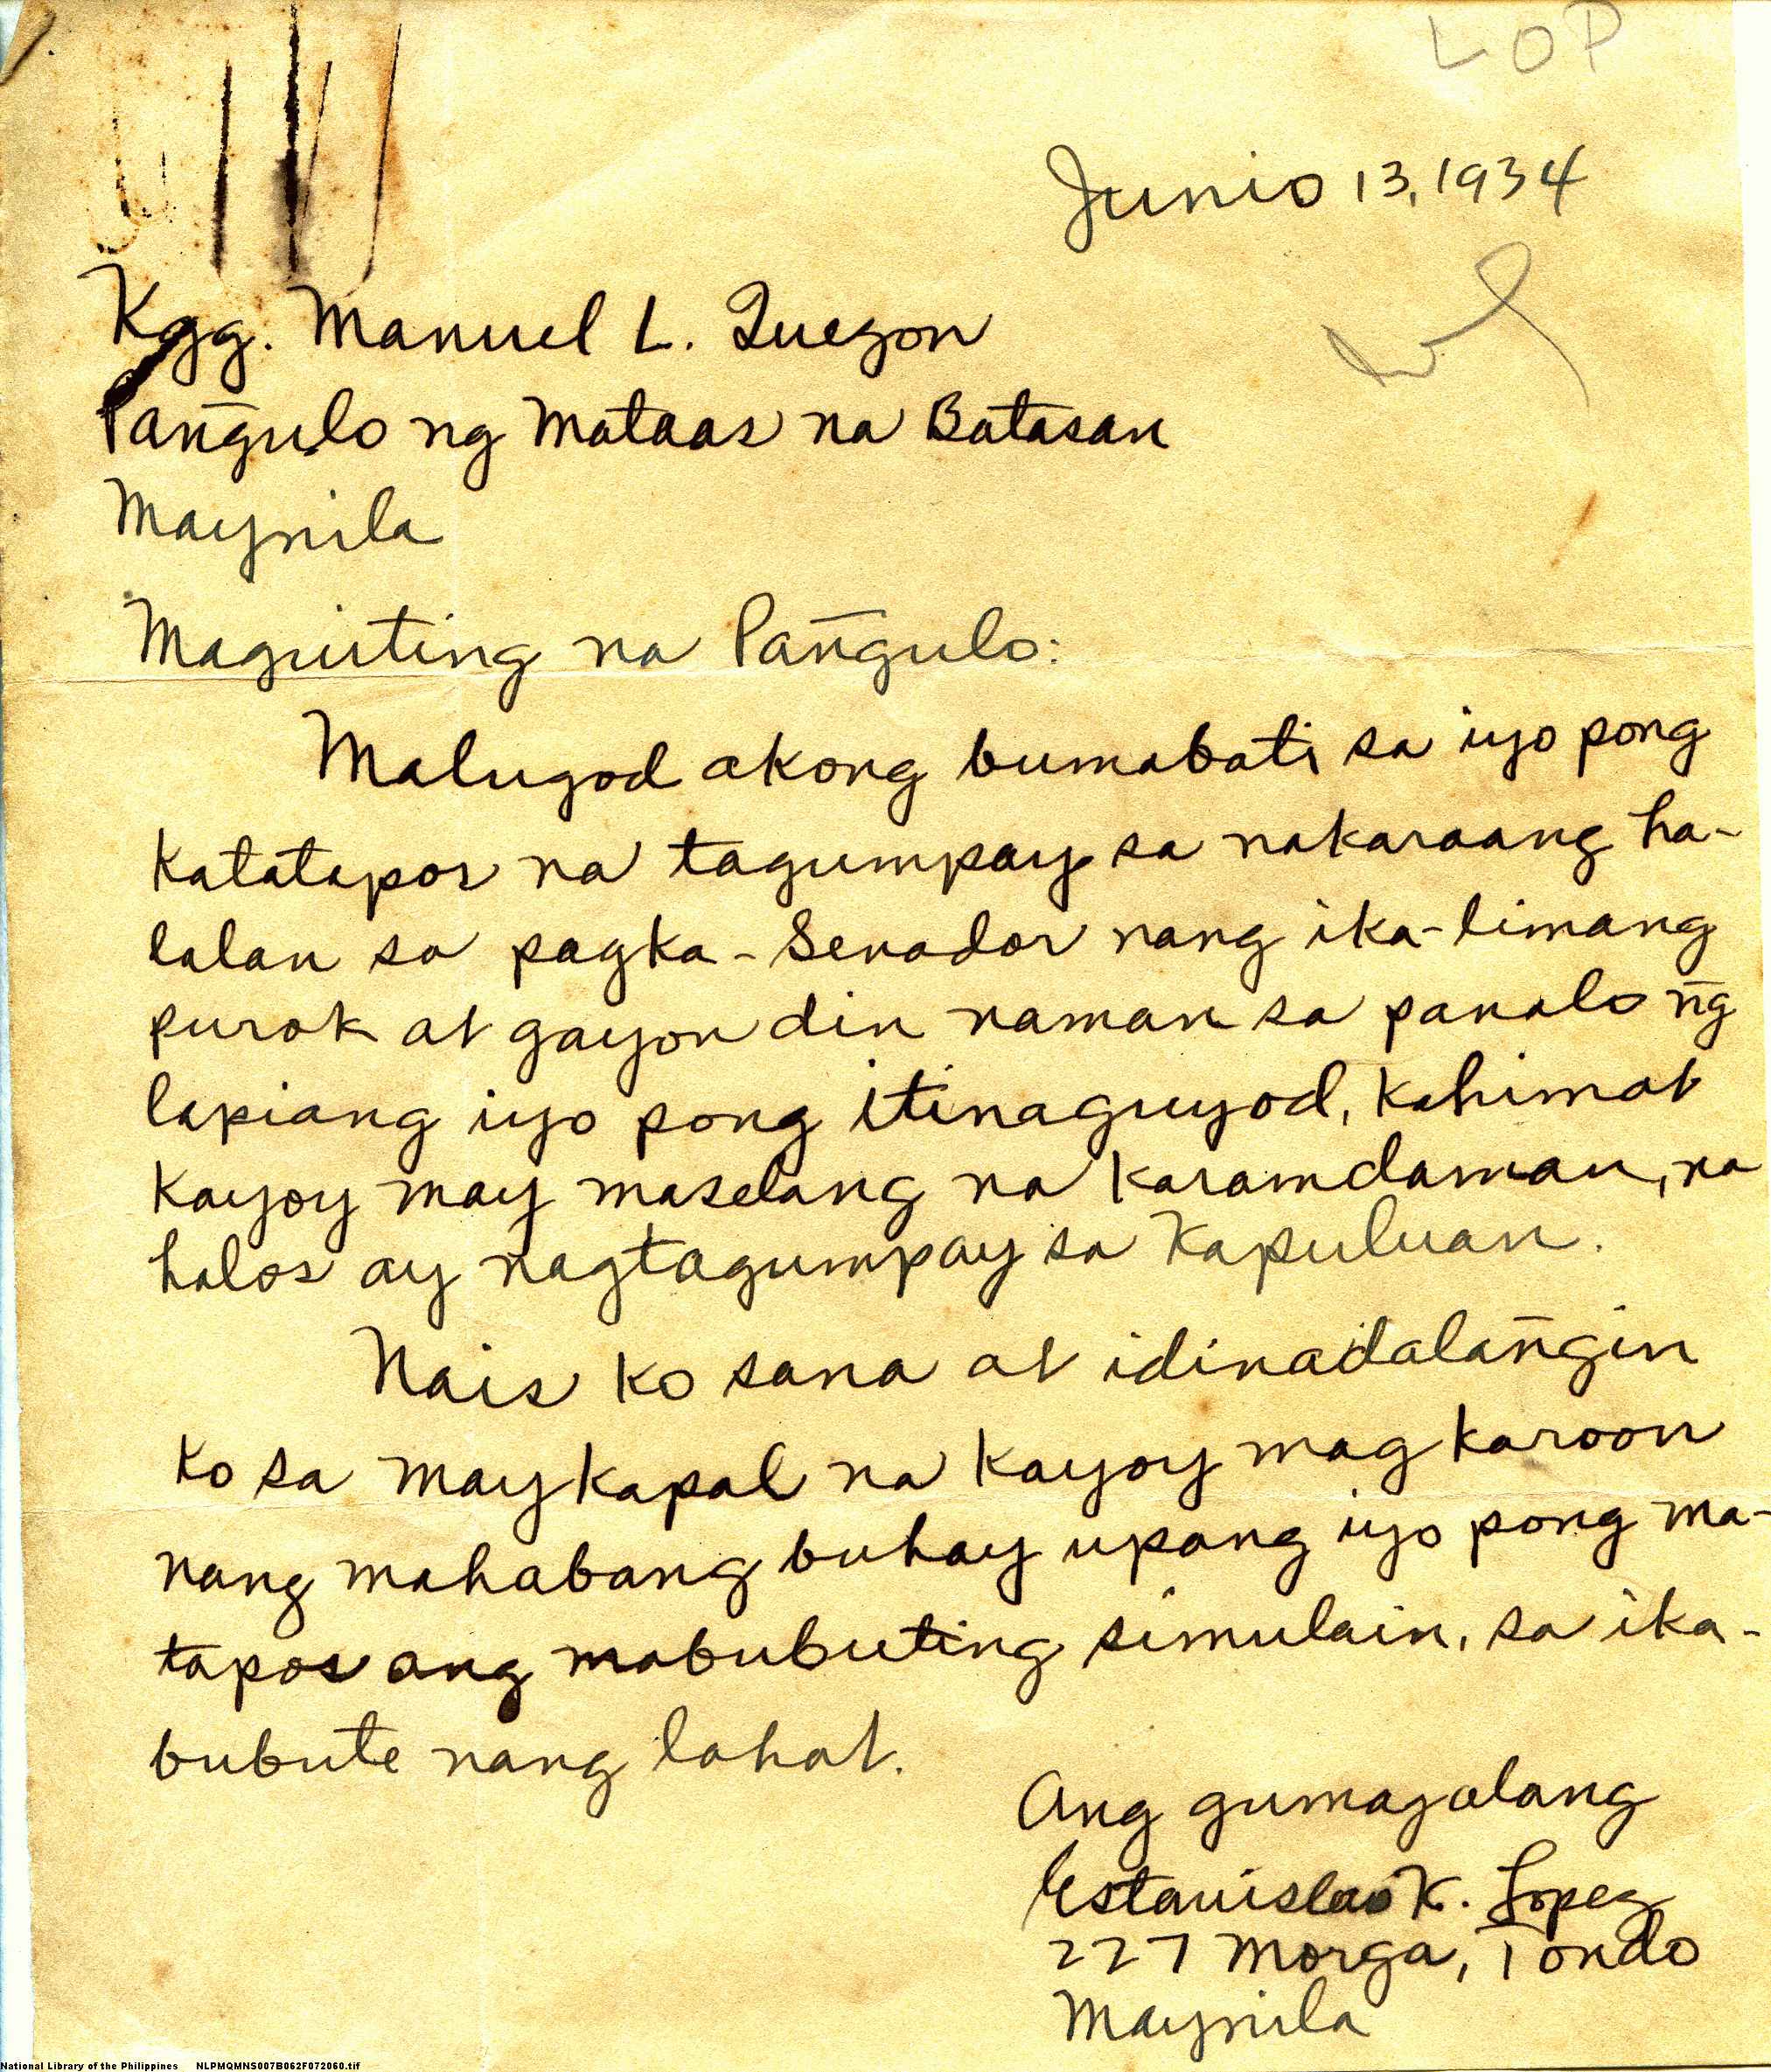 LOP
Junio 13, 1934
Kgg. Manuel L. Quezon
Pang̃ulo ng Mataas na Batasan
Maynila
Maguiting na Pang̃ulo:
Malugod akong bumabati sa iyo pong
katatapos na tagumpay sa nakaraang ha-
lalan sa pagka-Senador nang ika-limang
purok at gayon din naman sa panalo ng̃
lapiang iyo pong itinaguyod, kahimat
kayoy may maselang na karamdaman, na
halos ay nagtagumpay sa Kapuluan.
Nais ko sana at idinadalang̃in
ko sa maykapal na kayoy magkaroon
nang mahabang buhay upang iyo pong ma-
tapos ang mabubuting simulain, sa ika-
bubute nang lahat.
Ang gumagalang
Estanislao K. Lopez
227 Morga, Tondo
Maynila
National Library of the Philippines NLPMQMNS007B062F072060.tif